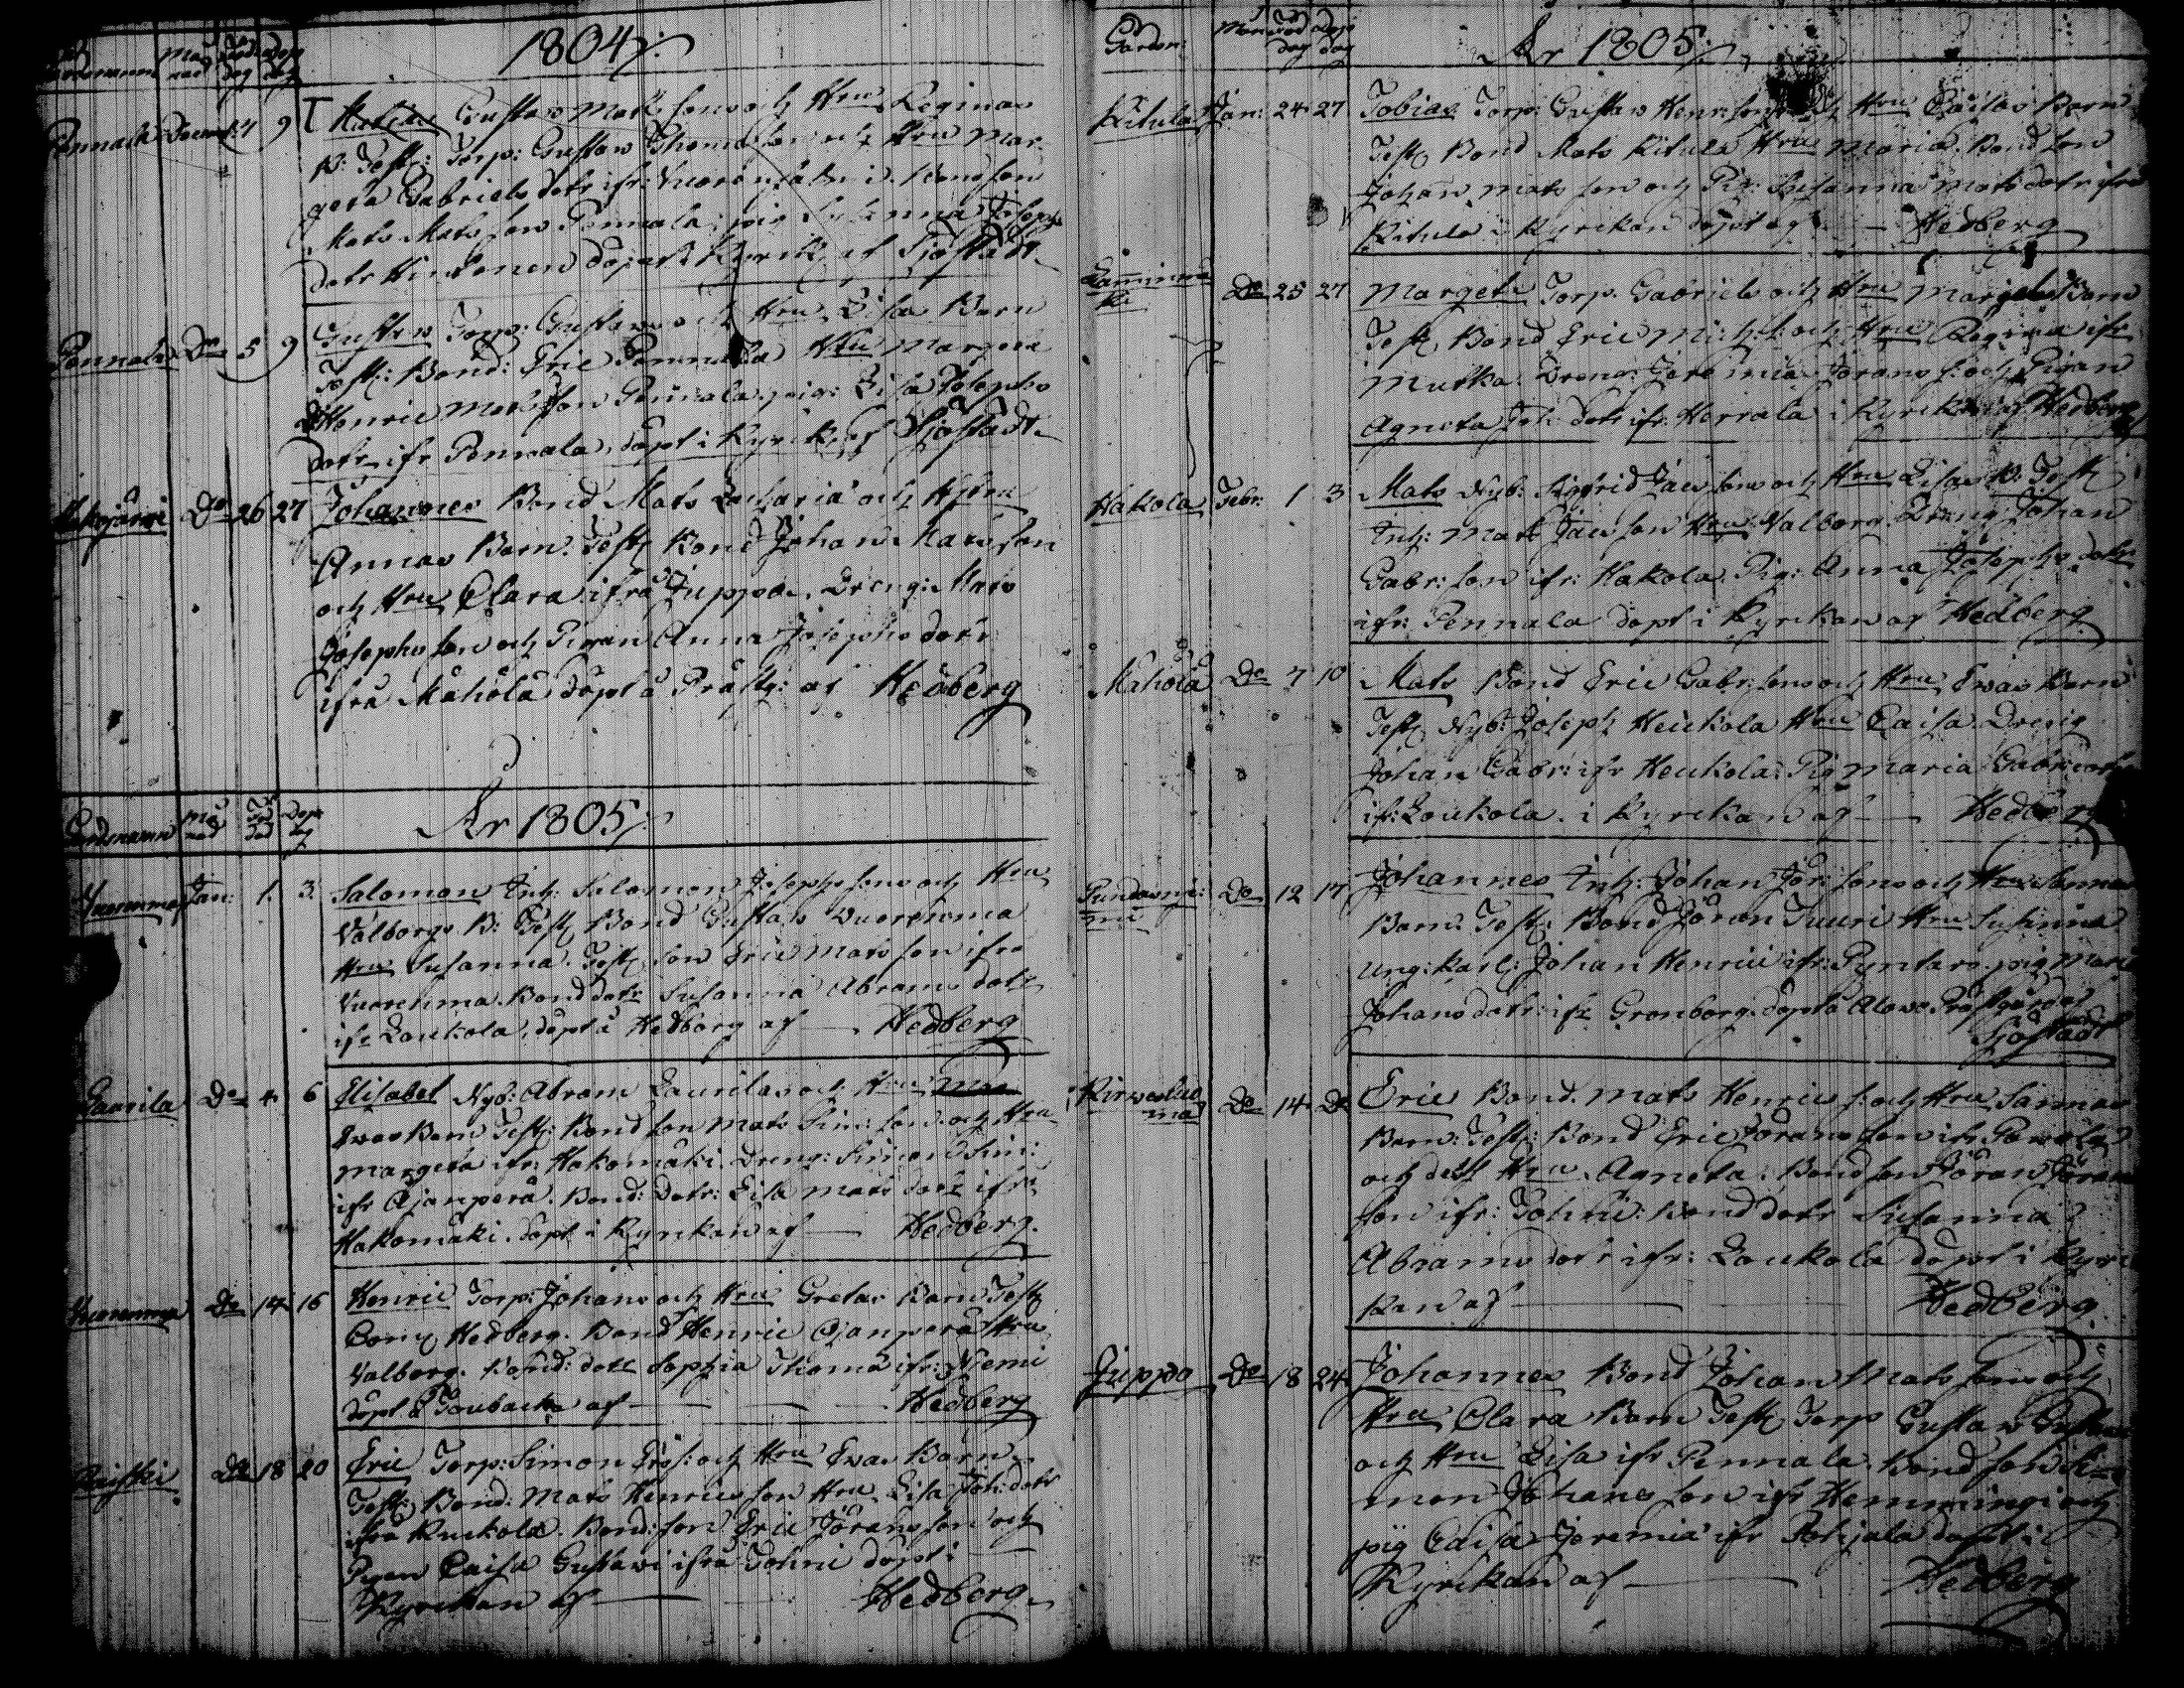 1804
Månad Född dag Döp dag
Pennala Decemb: 4 9 Matias Gustav Mats sons och Hru Reginas
B: Test: Torp: Gustav Thomas son och Hru Mar
geta Gabriels dotr ifr: Bondson
Mats Mats son Pennala, pig Susanna Josephs
dotr döpt i Kyrck: af Sjöstadt
Pennala Do 5 9 Gustav Torp: Gustavs och Hru Lisas Barn
Test: Bond: Eric Pennala Hru Margeta
Henric Mats son Pennala, pig: Lisa Josephs
dotr ifr Pennala, döpt i Kyrck: af Sjöstadt
Do 26 27 Johannes Bond Mats Zachariæ och Hstru
Annas Barn. Test Bond Johan Mats son
och Hru Clara ifrå Juppa, Dreng: Mats
Josephs son och Pigan Anna Josephs dotr
ifrå Måhola döpt å Prästg: af Hedberg
År 1805
Gårdsnamn Månad Föd dag Döpt dag
Vuorenma Jan: 1 3 Salomon Inh: Salomon Josephs sons och Hru
Valborgs B: Test Bond Gustav Vuorenma
Hru Susanna. Test son Eric Mats son ifrå
Vuorenma. Bond dotr Susanna Abrams dotr
ifr Loukola, döpt å Hedborg af Hedberg
Laurila Do 4 6 Elisabet Nyb: Abram Laurilas och Hru
Evas Barn Test: Bond son Mats Sim: son och Hru
Margeta ifr: Hakomäki. Dreng: Simon Sim:
ifr Ojanperä. Bond: dotr: Lisa Mats dotr ifr
Hakomäki. döpt i Kyrckan af Hedberg.
Vuorenma Do 14 16 Henric Torp: Johans och Hru Gretas Barn Test
Hedberg. Bond Henric Ojanperä Hru
Valborg. Bond: dotr Sophia Thoma ifr: Niemi
döpt å Joubacka af Hedberg
Do 18 20 Eric Torp: Simon Ers: och Hru Evas Barn
Test: Bond: Mats Henrics son Hru Lisa Joh: dotr
ifrå Ruckola. Bond: son Eric Jörans son och
Pigan Caisa Gustavi ifrå Tohni döpt i
Kyrckan af Hedberg
Garden: Månad Föd dag Döp dag År 1805
Ritula Jan: 24 27 Tobias Torp: Gustav Henr: sons och Hru Caisas Barn
Test Bond Mats Ritula Hru Maria. Bond son
Johan Mats son och Pig: Susanna Mats dotr ifrå
Ritula i Kyrckan döpt af Hedberg
Do 25 27 Margeta Torp. Gabriels och Hru Margetas Barn
Test Bond Eric Mich: s: och Hru Regina ifr
Mutka. Dreng: Jeremia Jörans s: och Pigan
Agneta Joh: dotr ifr: Herrala i Kyrckan af Hedberg
Hakola Febr: 1 3 Mats Nyb: Sigfrid Jac: sons och Hru Lisas B: Test
Inh: Mats Jac: son Hru Valborg. Dräng: Johan
Gabr: son ifr: Hakola. Pig: Anna Josephs dotr
ifr: Pennala döpt i Kyrckan af Hedberg
Mahola Do 7 10 Mats Bond Eric Gabr: sons och Hru Evas Barn
Test Nyb: Joseph Heickola Hru Caisa. Dreng
Johan Gabr: ifr Heickola. Pig Maria Gabr: dotr
ifr: Loukola. i Kyrckan af Hedberg
Do 12 17 Johannes Inh: Johan Jör: sons och Hru Sannas
Barn. Test: Bond Jöran Tuuri Hru Susanna
ung: karl: Johan Henrici ifr: Pyntars. pig Maria
Johans dotr: ifr Grönborg. döpt å Alavo Prästgård af
Sjöstadt
Kirvesluoma Do 14 Do Eric Bond. Mats Henrics s: och Hru Sannas
Barn: Test: Bond Eric Jörans son ifr
och dess Hru Agneta. Bond son Jöran Jörans
son ifr: Tohni: Bond dotr Susanna
Abrams dotr ifr: Loukola döpt i Kyrc
kan af Hedberg
Juppa Do 18 24 Johannes Bond Johan Mats sons och
Hru Clara Barn Test Torp Gustav
och Hru Lisa ifr Pennala. Bond son Si
mon Johans son ifr Hemmingi och
pig Caisa Jeremiæ ifr Pohjala döpt i
Kyrckan af Hedberg